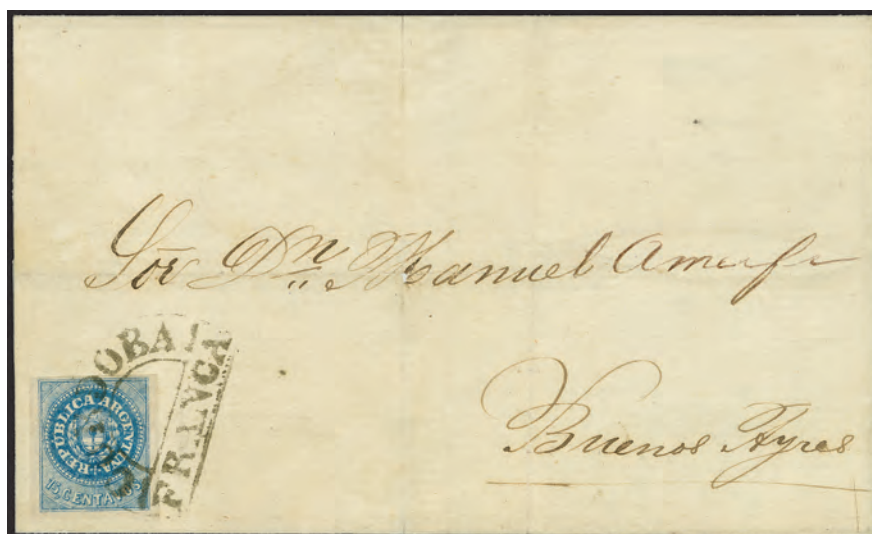 Sor Dn Manuel
Buenos Ayres
FRANCA
REPÚBLICA ARGENTINA
15 CENTAVOS